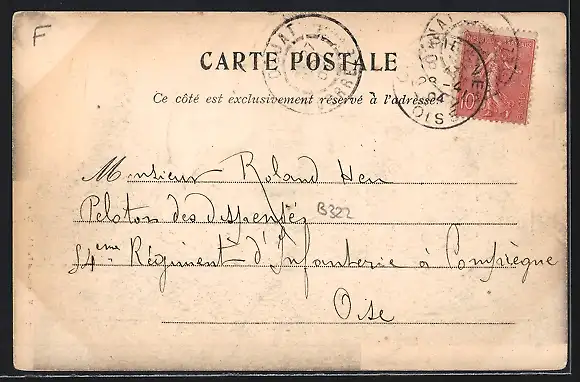 F
CARTE POSTALE
Ce côté est exclusivement réservé à l'adresse
Monsieur Roland Hen
Peloton des dispensés
B322
54eme Régiment d'Infanterie à Compiègne
Oise
10